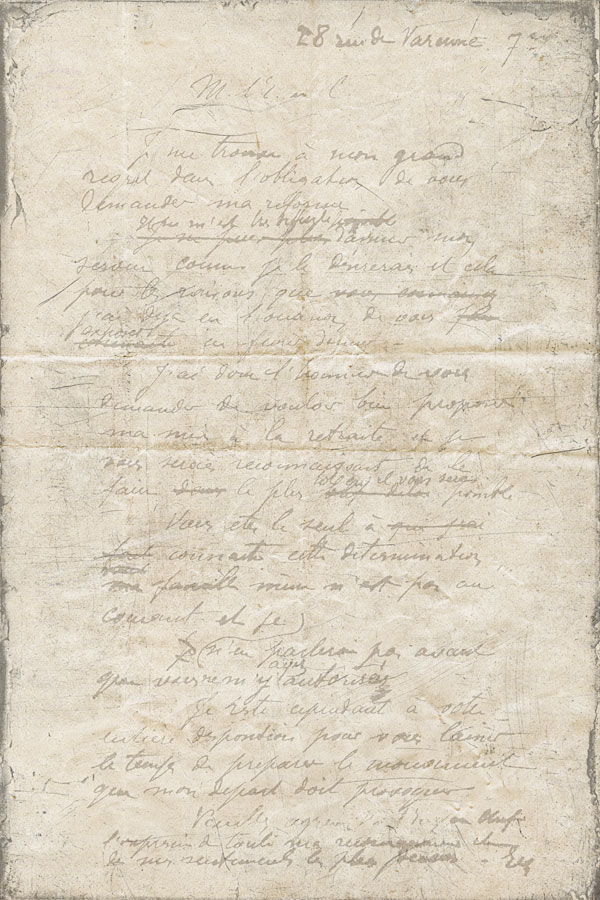 28 rue de Varenne 7e
M
Je me trouve à mon grand
regret dans l'obligation de vous
demander ma
m'est très pénible
je ne puis plus d'assurer mon
service comme je le désirerais et cela
pour les raisons que vous connaissez
j'ai déjà eu l'honneur de vous
exposer
J'ai donc l'honneur de vous
demander de vouloir bien proposer
ma mise à la retraite et je
vous serais reconnaissant de le
faire dans le plus tôt qu'il vous sera possible
Vous êtes le seul à qui j'ai
fait connaître cette détermination
ma famille même n'est pas au
courant et je
n'en parlerai pas avant
que vous ne m'y ayez autorisé
Je reste cependant à votre
entière disposition pour vous laisser
le temps de préparer le mouvement
que mon départ doit provoquer
Veuillez agréer
l'expression de toute ma reconnaissance
de mes sentiments les plus